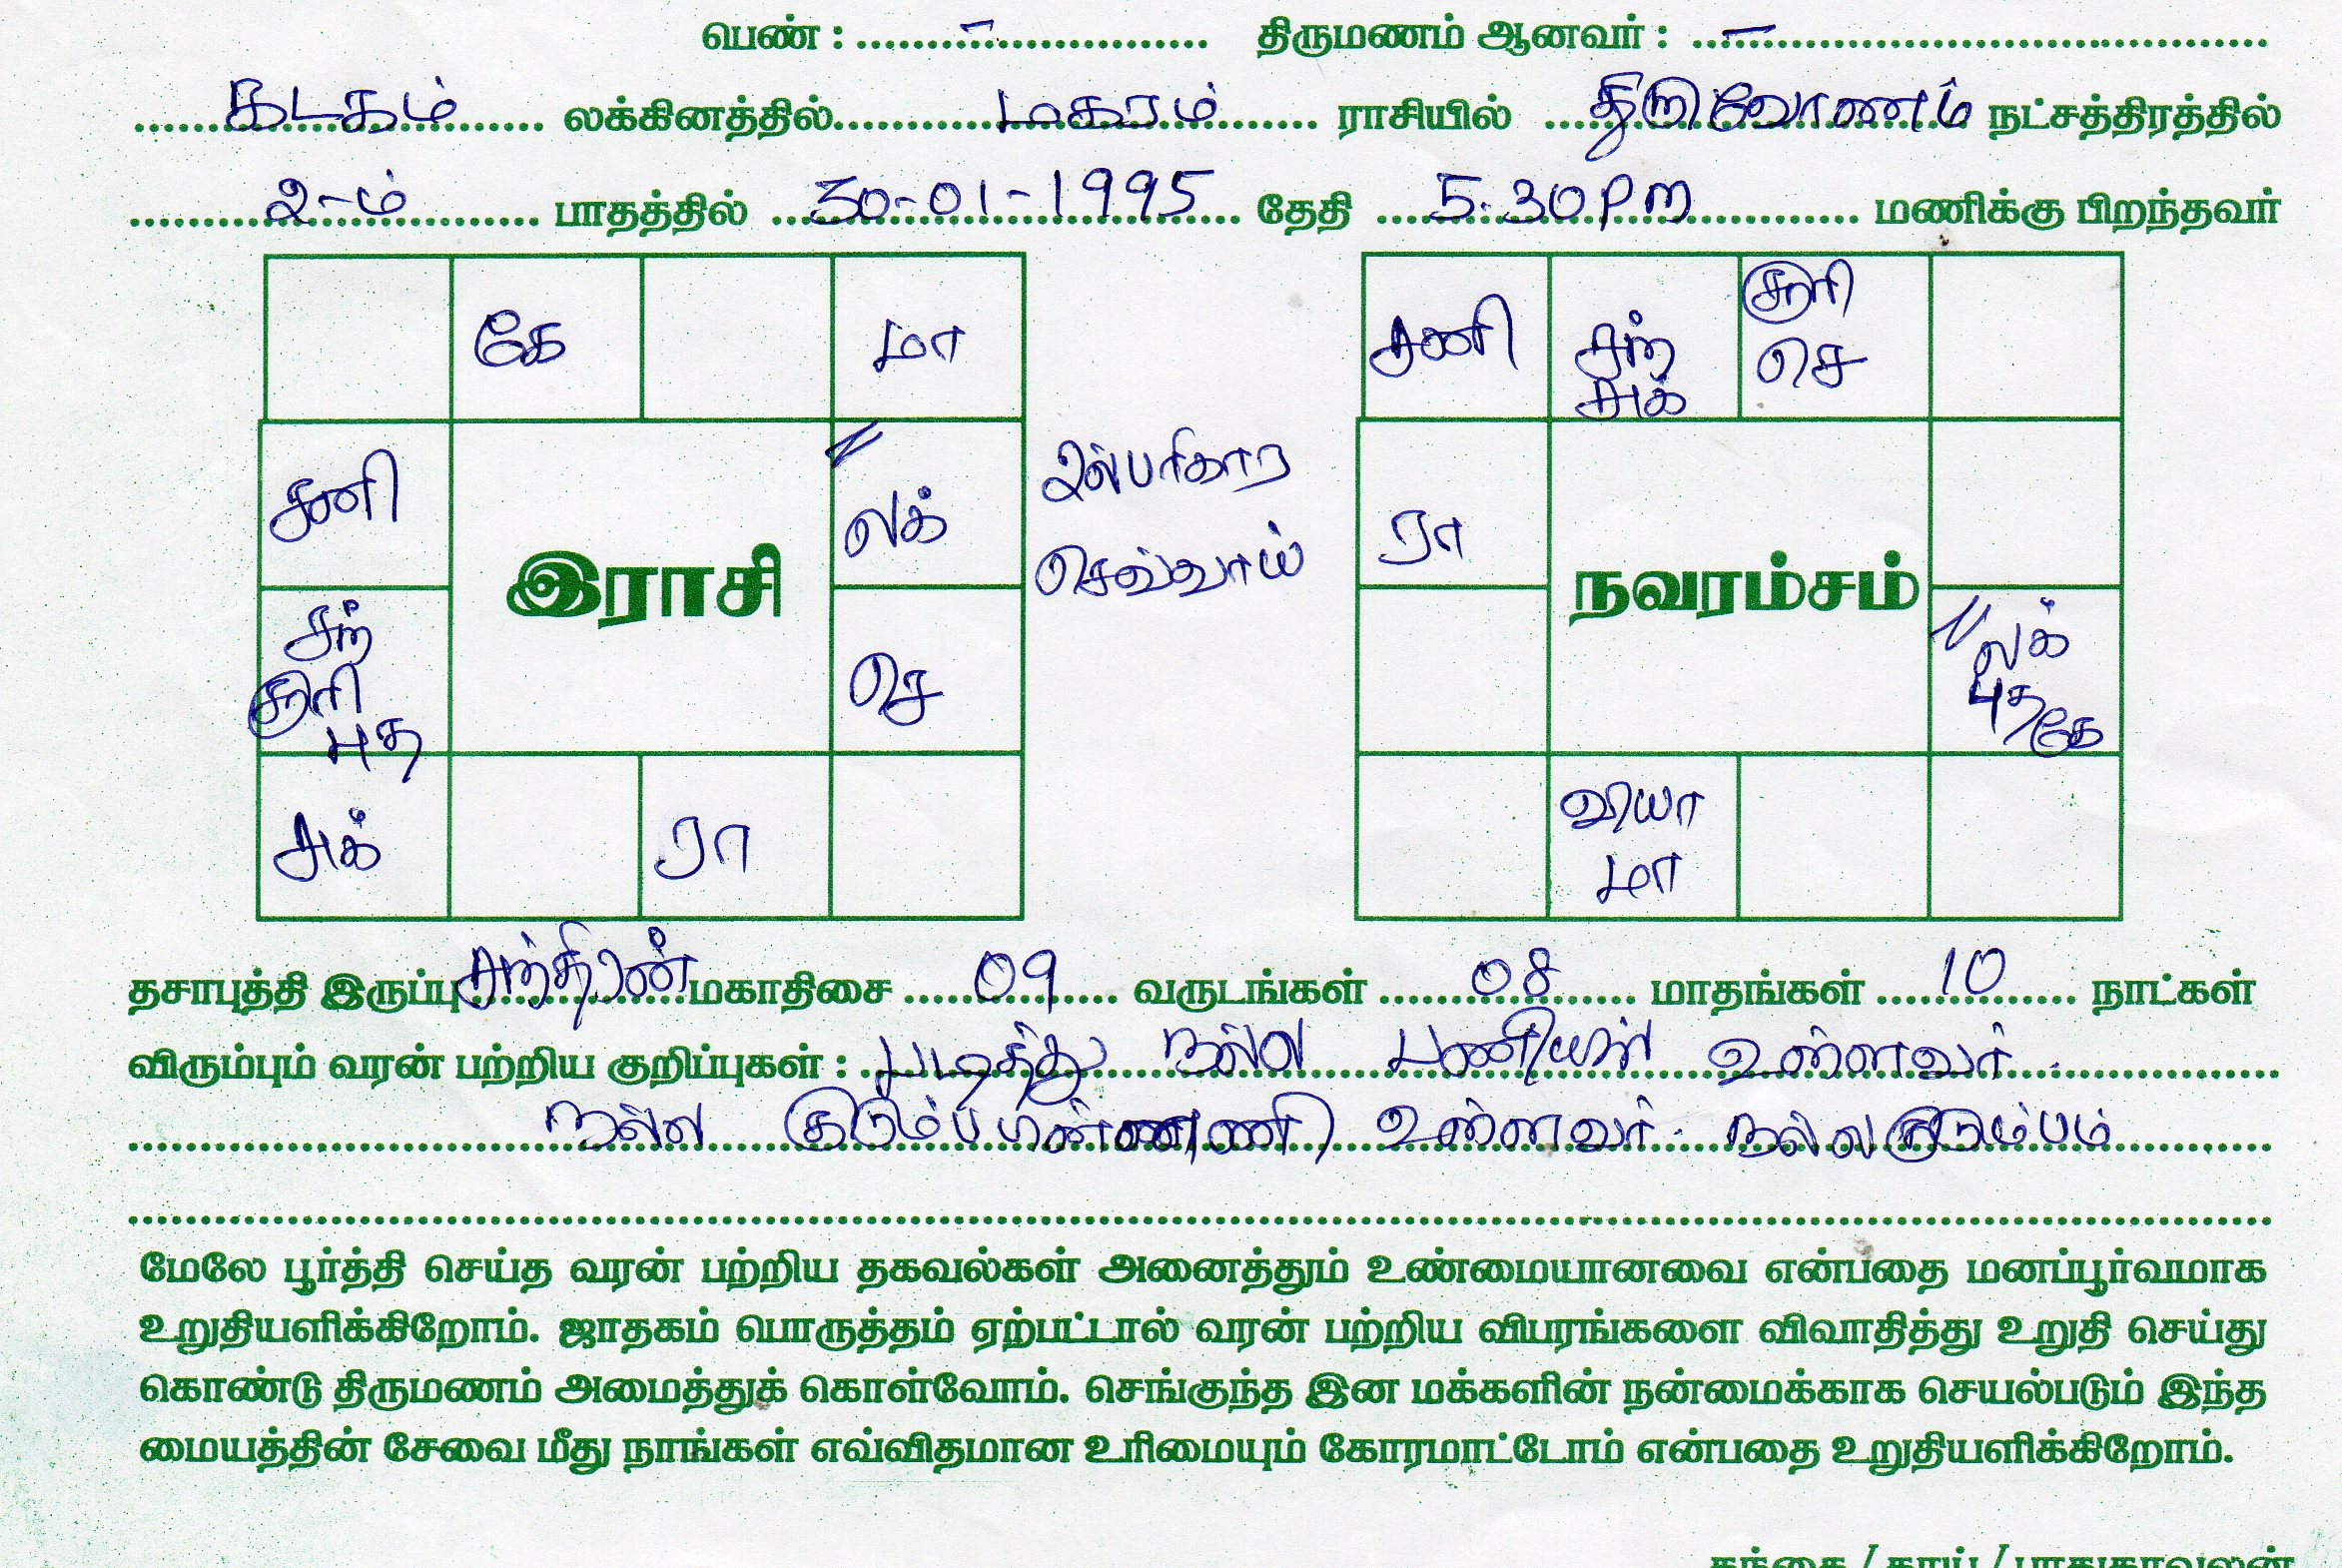 பெண் : - திருமணம் ஆனவர் : -
கடகம் லக்கினத்தில் மகரம் ராசியில் திருவோணம் நட்சத்திரத்தில்
2-ம் பாதத்தில் 30-01-1995 தேதி 5.30 Pm மணிக்கு பிறந்தவர்
கே மா
சனி லக்
இராசி
சந் சூரி புத செ
அக் ரா
செவ்வாய்
சனி சந் சுக் சூரி செ
ரா
நவரம்சம்
லக் புத கே
வியா மா
தசாபுத்தி இருப்பு சந்திரன் மகாதிசை 09 வருடங்கள் 08 மாதங்கள் 10 நாட்கள்
விரும்பும் வரன் பற்றிய குறிப்புகள் : படித்து நல்ல பணியில் உள்ளவர்.
நல்ல உள்ளவர். நல்ல குடும்பம்
மேலே பூர்த்தி செய்த வரன் பற்றிய தகவல்கள் அனைத்தும் உண்மையானவை என்பதை மனப்பூர்வமாக
உறுதியளிக்கிறோம். ஜாதகம் பொருத்தம் ஏற்பட்டால் வரன் பற்றிய விபரங்களை விவாதித்து உறுதி செய்து
கொண்டு திருமணம் அமைத்துக் கொள்வோம். செங்குந்த இன மக்களின் நன்மைக்காக செயல்படும் இந்த
மையத்தின் சேவை மீது நாங்கள் எவ்விதமான உரிமையும் கோரமாட்டோம் என்பதை உறுதியளிக்கிறோம்.